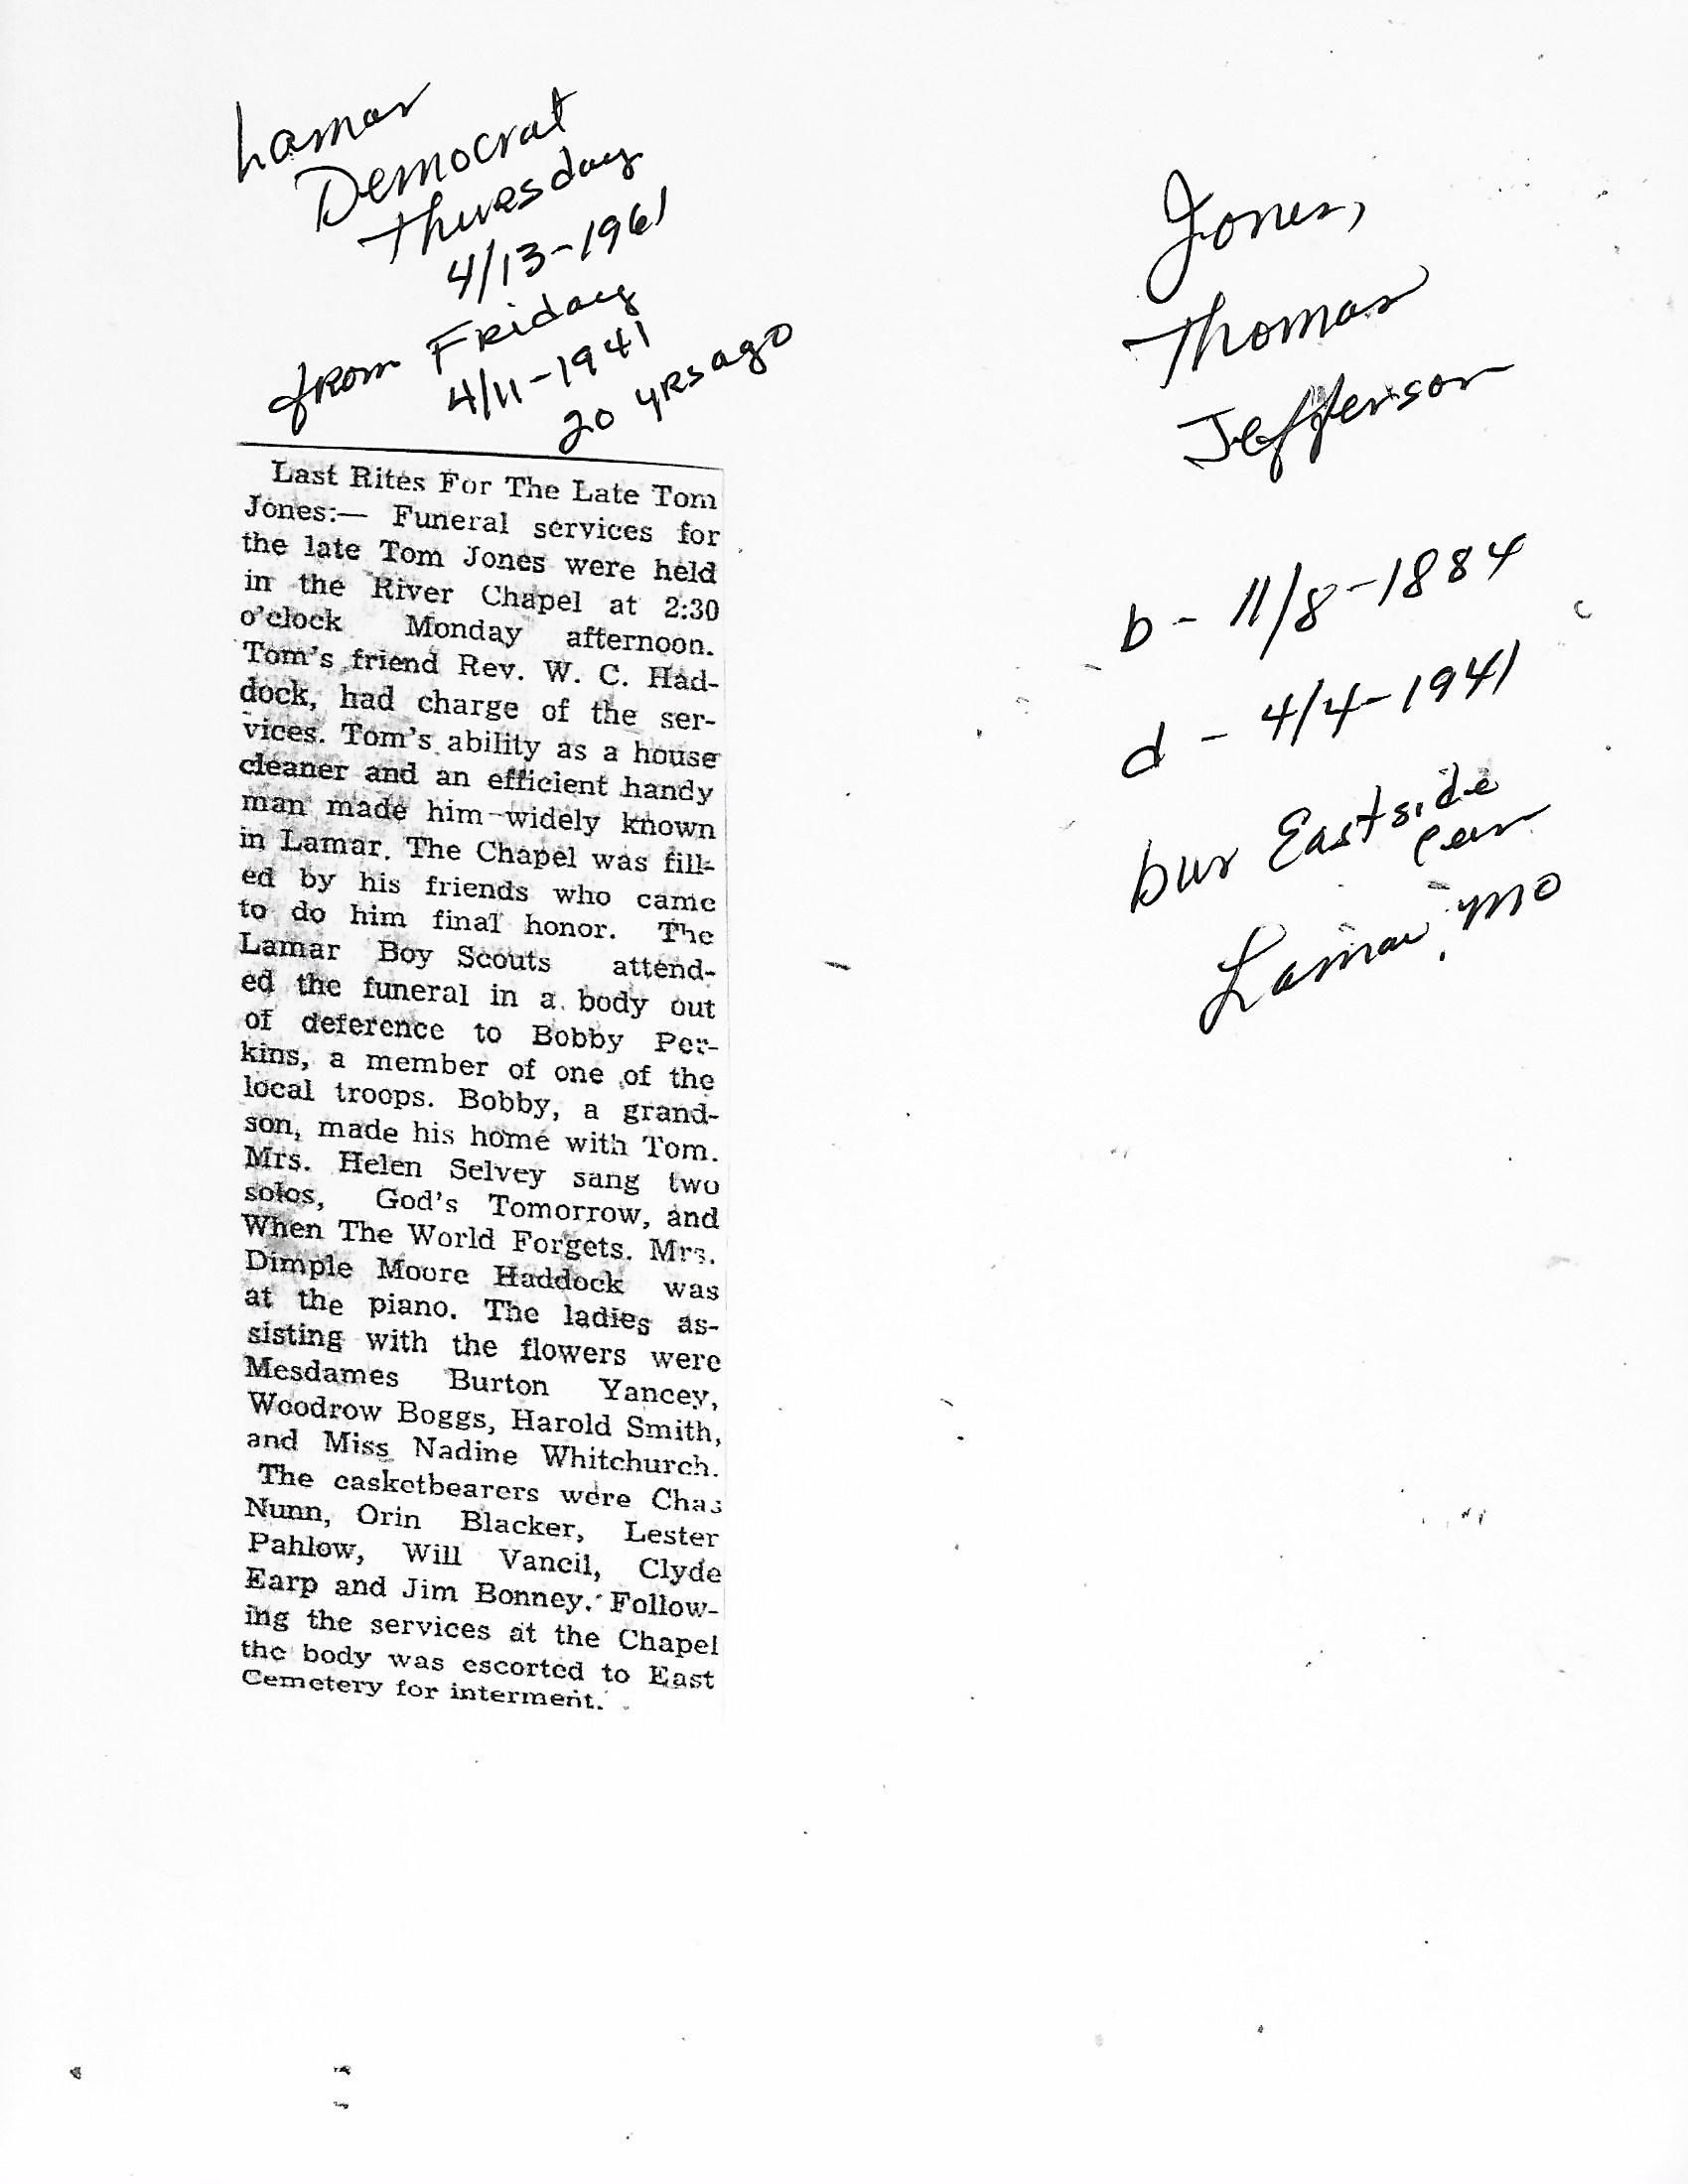 Lamar
Democrat
Thuresday
4/13-1961
from Friday
4/11-1941
20 yrs ago
Last Rites For The Late Tom
Jones:— Funeral services for
the late Tom Jones were held
in the River Chapel at 2:30
o'clock Monday afternoon.
Tom's friend Rev. W. C. Had-
dock, had charge of the ser-
vices. Tom's ability as a house
cleaner and an efficient handy
man made him widely known
in Lamar. The Chapel was fill-
ed by his friends who came
to do him final honor. The
Lamar Boy Scouts attend-
ed the funeral in a body out
of deference to Bobby Per-
kins, a member of one of the
local troops. Bobby, a grand-
son, made his home with Tom.
Mrs. Helen Selvey sang two
solos, God's Tomorrow, and
When The World Forgets. Mrs.
Dimple Moore Haddock was
at the piano. The ladies as-
sisting with the flowers were
Mesdames Burton Yancey,
Woodrow Boggs, Harold Smith,
and Miss Nadine Whitchurch.
The casketbearers were Chas
Nunn, Orin Blacker, Lester
Pahlow, Will Vancil, Clyde
Earp and Jim Bonney. Follow-
ing the services at the Chapel
the body was escorted to East
Cemetery for interment.
Jones,
Thomas
Jefferson
b - 11/8-1884
d - 4/4-1941
bur Eastside
Cem
Lamar, Mo